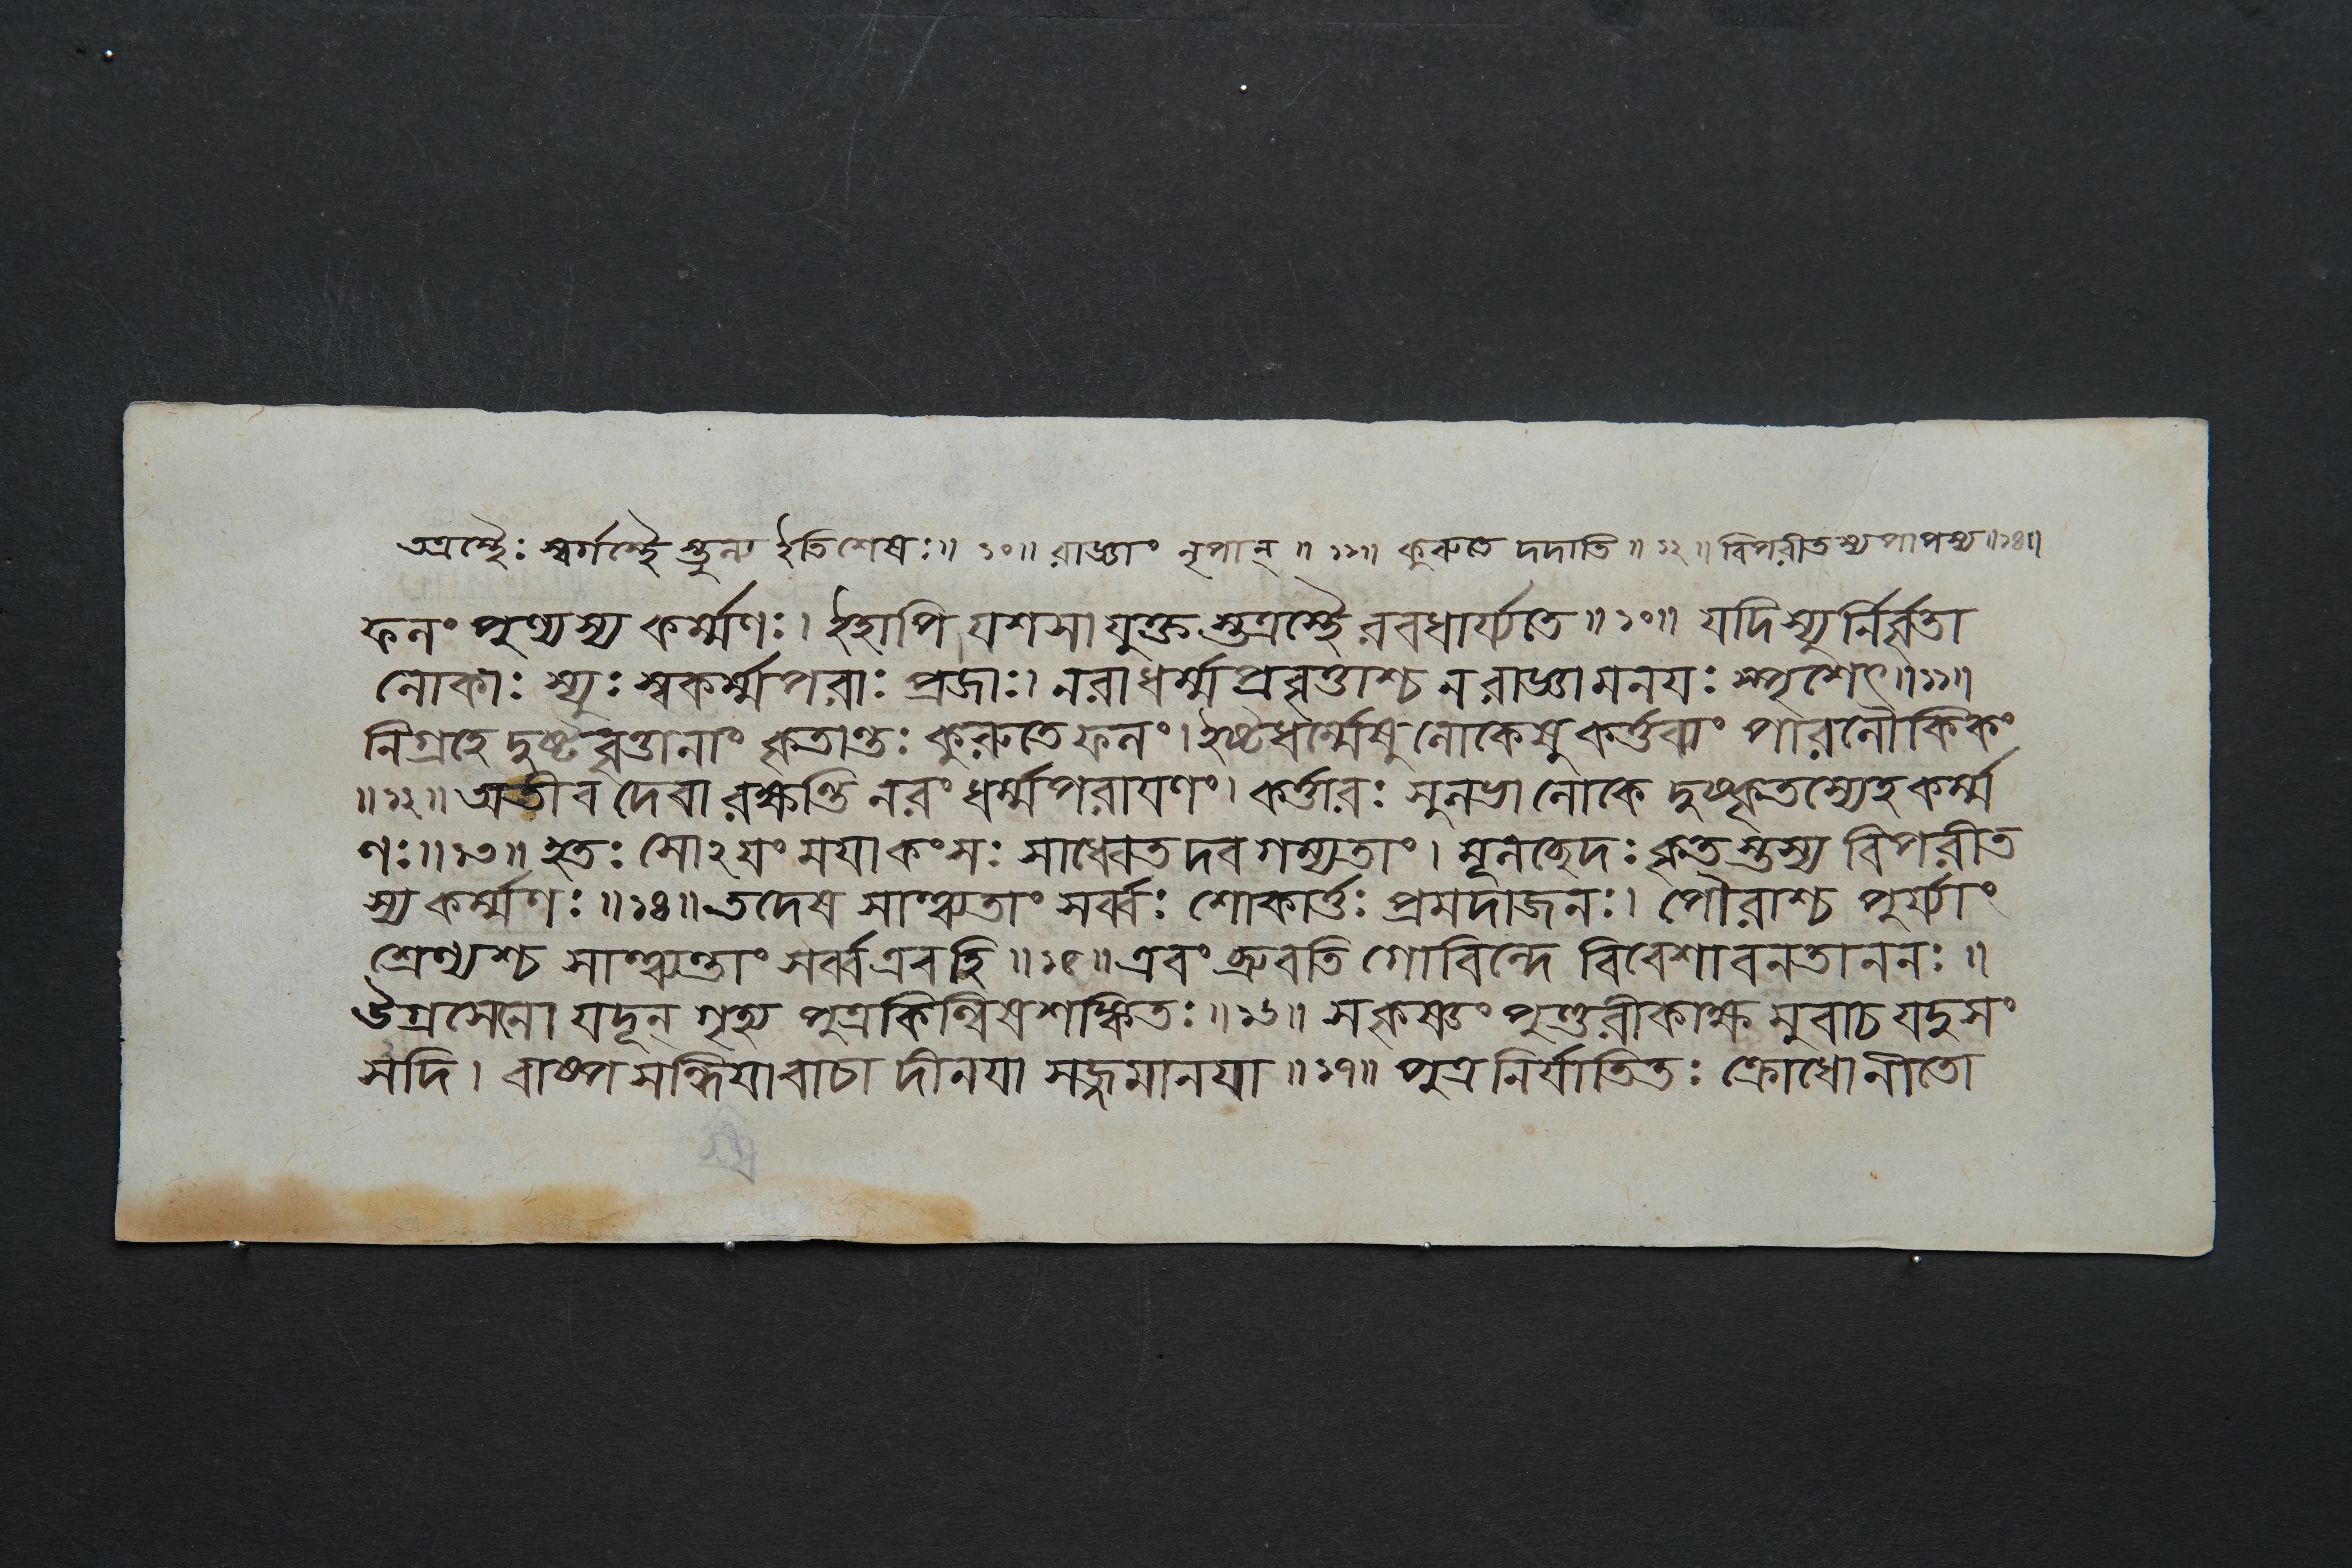 তত্রস্থৈঃ স্বর্গস্থৈস্তুল্য ইতিশেষঃ॥ ১০॥ রাজ্ঞাং নৃপান্॥ ১১॥ কুরুতে দদাতি॥ ১২॥ বিপরীতস্য পাপস্য॥১৪॥
ফলং পুণ্যস্য কর্ম্মণঃ। ইহাপি যশসা যুক্তস্তত্রস্থৈরবধার্য্যতে॥১০॥ যদিস্যুর্নির্বৃতা
লোকাঃ স্যুঃ স্বকর্ম্মপরাঃ প্রজাঃ। নরাধর্ম্মপ্রবৃত্তাশ্চ নরাজ্ঞামনয়ঃ স্পৃশেৎ॥১১॥
নিগ্রহে দুষ্টবৃত্তানাং কৃতান্তঃ কুরুতে ফলং। ইষ্টধর্ম্মেষু লোকেষু কর্ত্তব্যং পারলৌকিকং
॥১২॥ অতীব দেবা রক্ষন্তি নরং ধর্ম্মপরায়ণং। কর্ত্তারঃ সুলভা লোকে দুষ্কৃতস্যেহ কর্ম্ম
ণঃ॥১৩॥ হতঃ সোঽয়ং ময়া কংসঃ সাধ্বেতদবগম্যতাং। মূলচ্ছেদঃ কৃতস্তস্য বিপরীত
স্য কর্ম্মণঃ॥১৪॥ তদেষ সান্ত্ব্যতাং সর্ব্বঃ শোকার্ত্তঃ প্রমদাজনঃ। পৌরাশ্চ পুর্য্যাং
শ্রেণ্যশ্চ সান্ত্ব্যন্তাং সর্ব্বএবহি॥১৫॥ এবং ব্রুবতি গোবিন্দে বিবেশাবনতাননঃ॥
উগ্রসেনো যদূন্ গৃহ্য পুত্রকিল্বিষশঙ্কিতঃ॥১৬॥ সকৃষ্ণং পুণ্ডরীকাক্ষমুবাচ যদুসং
সদি। বাষ্পসন্দিগ্ধয়াবাচা দীনয়া সজ্জমানয়া॥১৭॥ পুত্র নির্যাতিতঃ ক্রোধোনীতো